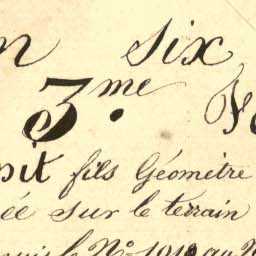 en six
3.me F
pit fils Géomètre
ée sur le terrain
puis le N.o 1010 au N